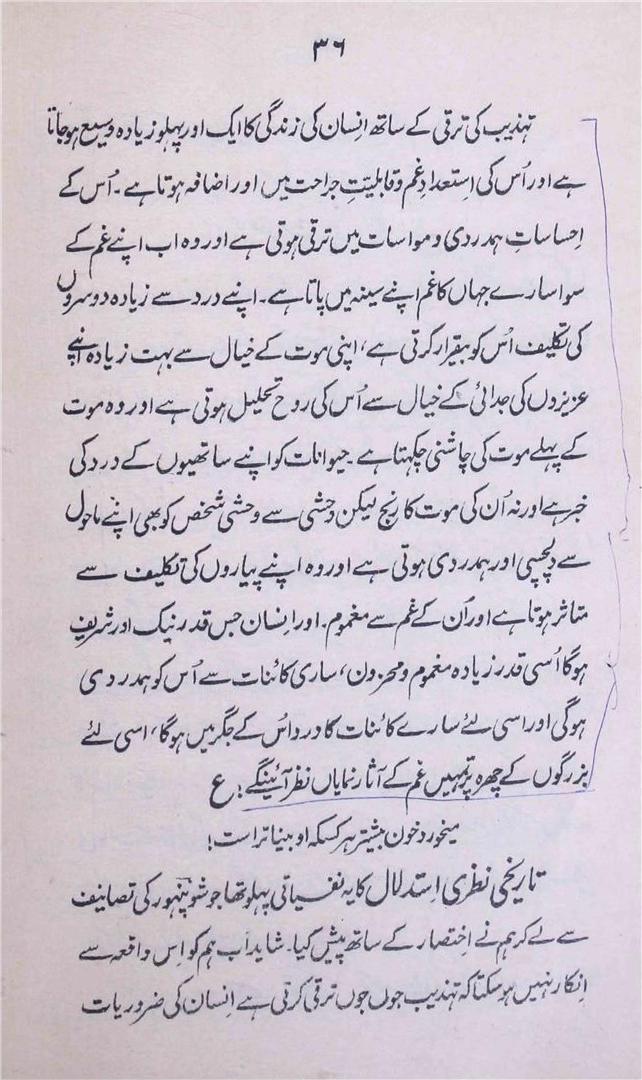 ۳۶
تہذیب کی ترقی کے ساتھ اِنسان کی زندگی کا ایک اور پہلو زیادہ وسیع ہوجاتا
ہے اور اُس کی اِستعدادِ غم وقابلیّتِ جراحت میں اور اضافہ ہوتا ہے۔ اُس کے
اِحساساتِ ہمدردی و مواسات میں ترقی ہوتی ہے اور وہ اب اپنے غم کے
سوا سارے جہاں کا غم اپنے سینہ میں پاتا ہے۔ اپنے درد سے زیادہ دوسروں
کی تکلیف اُس کو بیقرار کرتی ہے، اپنی موت کے خیال سے بہت زیادہ اپنے
عزیزوں کی جدائی کے خیال سے اُس کی روح تحلیل ہوتی ہے اور وہ موت
کے پہلے موت کی چاشنی چکہتا ہے۔ حیوانات کو اپنے ساتھیوں کے درد کی
خبر ہے اور نہ اُن کی موت کا رنج لیکن وحشی سے وحشی شخص کو بھی اپنے ماحول
سے دلچسپی اور ہمدردی ہوتی ہے اور وہ اپنے پیاروں کی تکلیف سے
متاثر ہوتا ہے اور اُن کے غم سے مغموم۔ اور اِنسان جس قدر نیک اور شریف
ہوگا اُسی قدر زیادہ مغموم و محزون، ساری کائنات سے اُس کو ہمدردی
ہوگی اور اسی لئے سارے کائنات کا درد اُس کے جگر میں ہوگا، اسی لئے
بزرگوں کے چہرہ پر تمہیں غم کے آثار نمایاں نظر آئینگے! ع
میخورد خون بیشتر ہر کسکہ او بینا تر است!
تاریخی نظری اِستدلال کا یہ نفسیاتی پہلو تھا جو شوپنہور کی تصانیف
سے لے کر ہم نے اِختصار کے ساتھ پیش کیا۔ شاید اب ہم کو اِس واقعہ سے
اِنکار نہیں ہوسکتا کہ تہذیب جوں جوں ترقی کرتی ہے اِنسان کی ضروریات